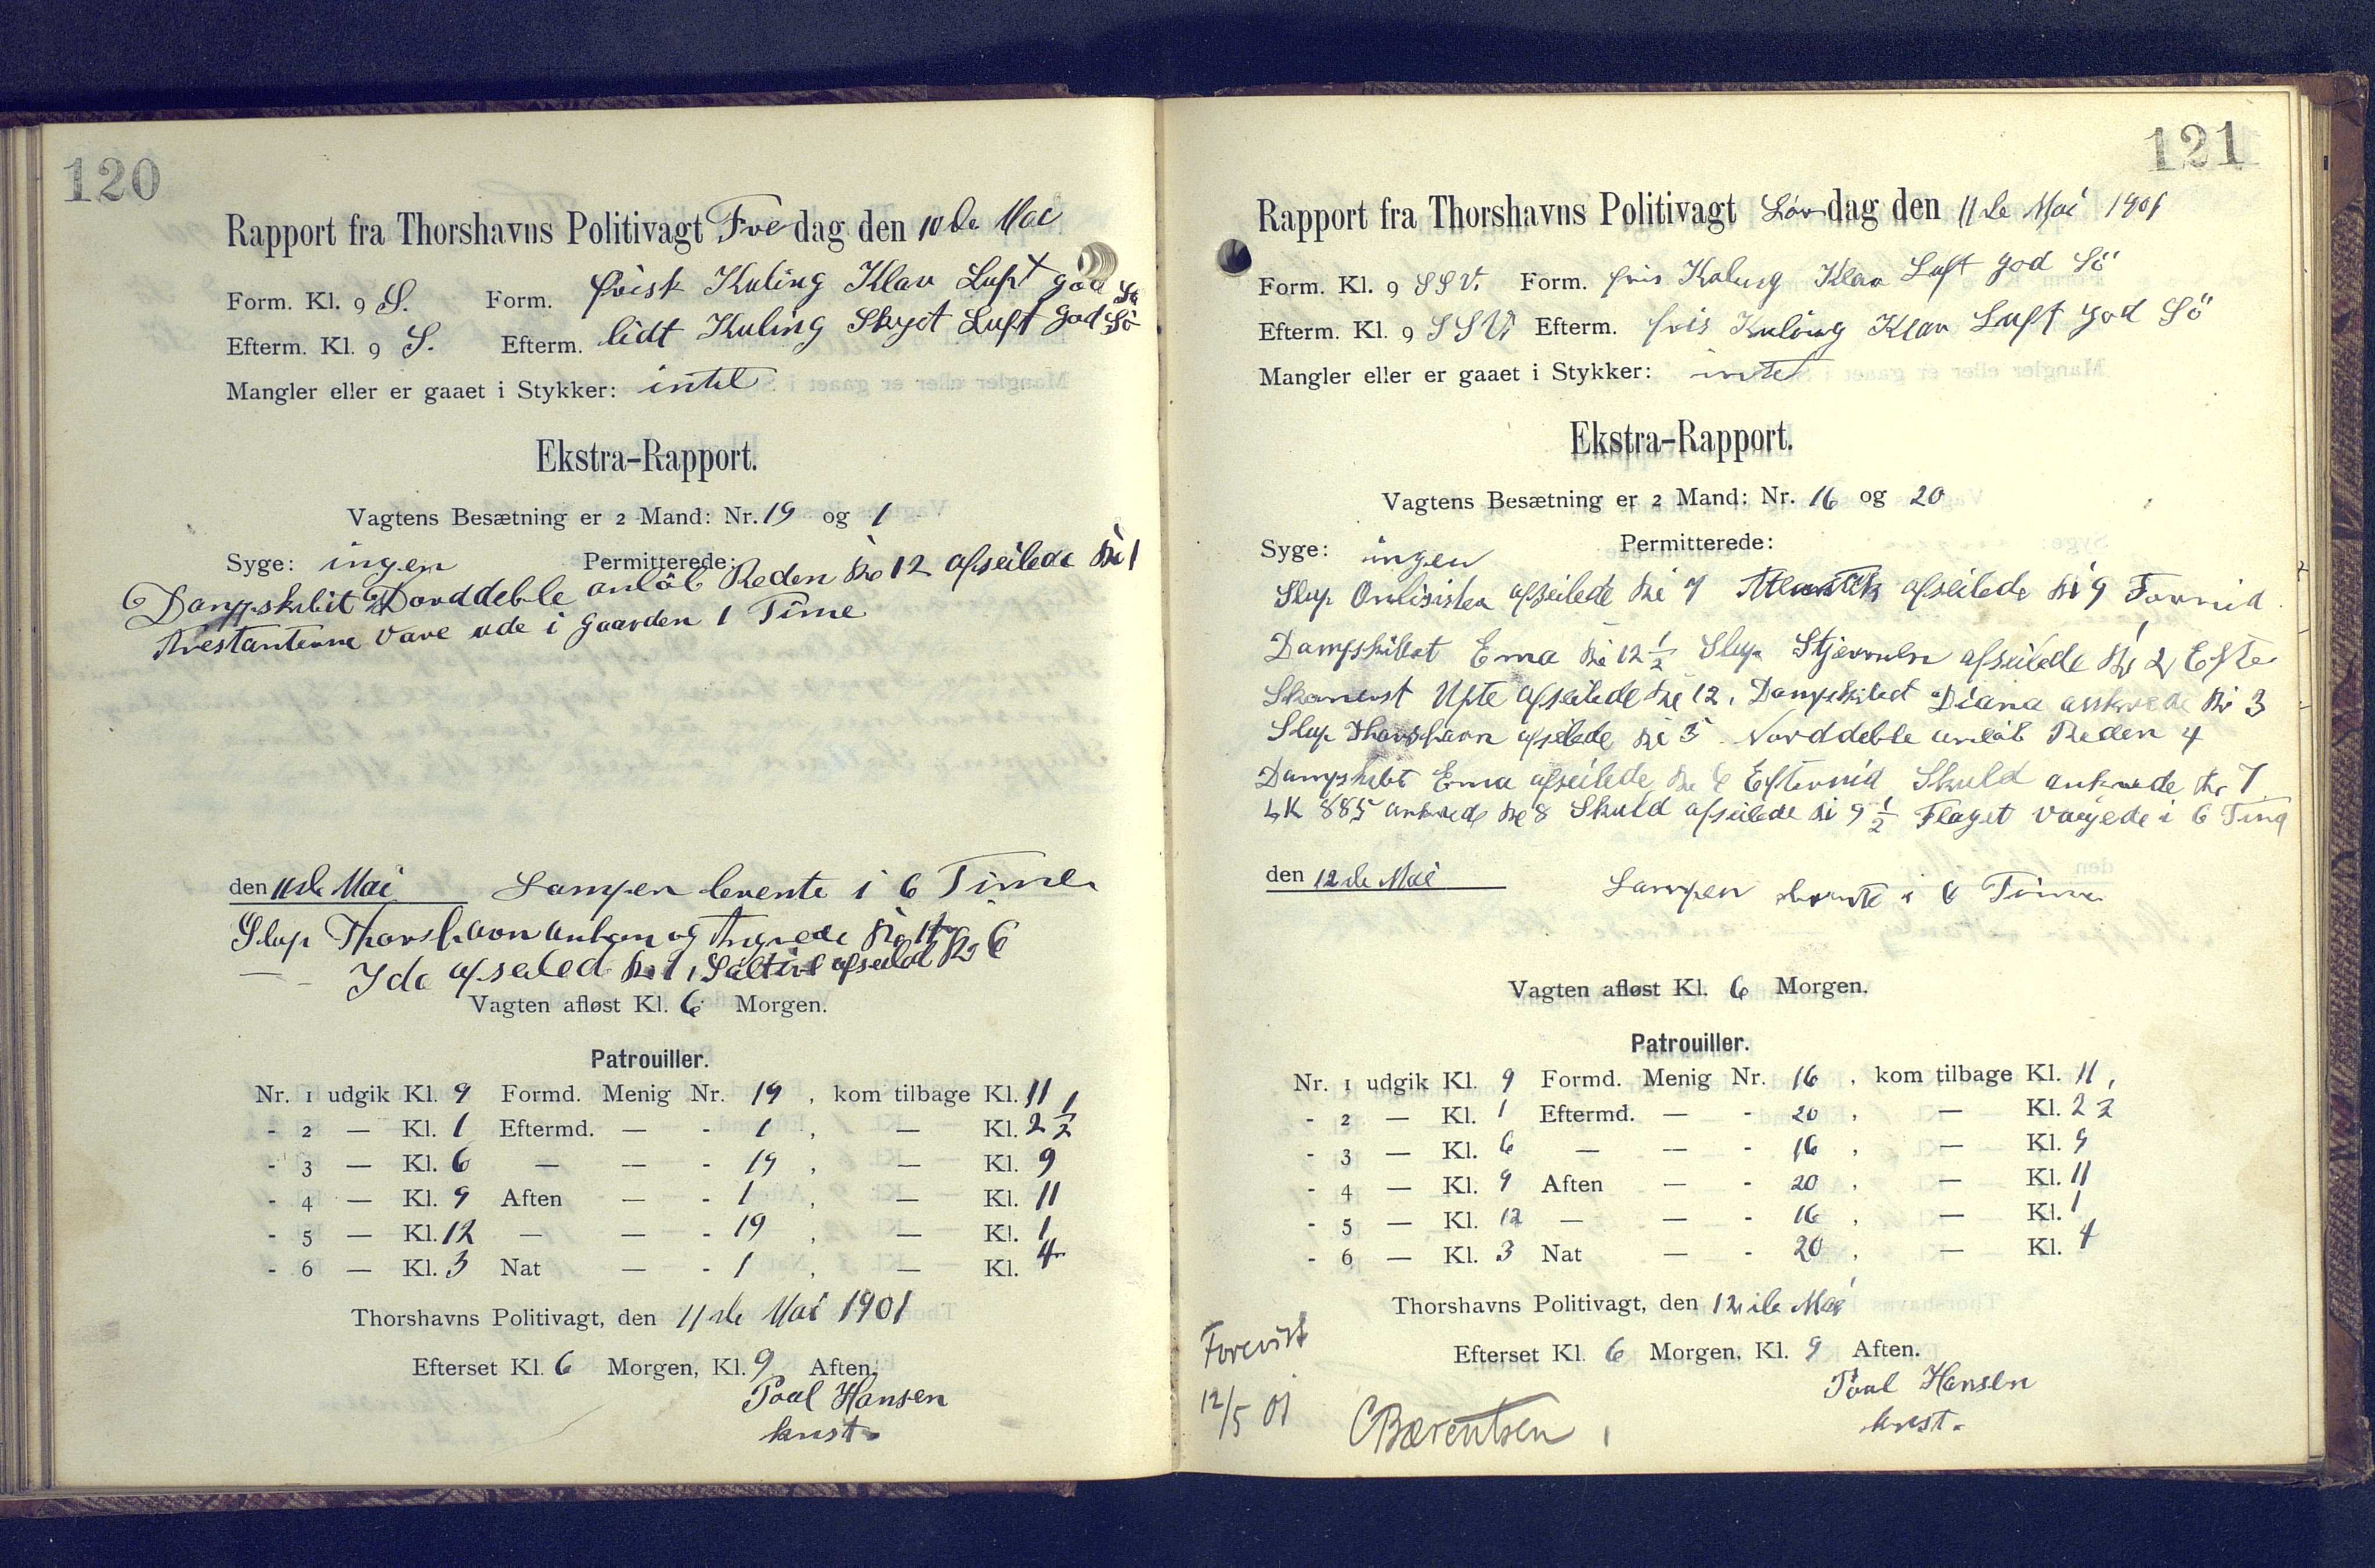 120
Rapport fra Thorshavns Politivagt Fredag den 10de Mai
Form. Kl. 9 S. Form. frisk Kuling Klar Luft god Sö
Efterm. Kl. 9 S. Efterm. lidt Kuling Skyet Luft god Sö
Mangler eller er gaaet i Stykker: intet
Ekstra-Rapport.
Vagtens Besætning er 2 Mand: Nr. 19 og 1
Syge: ingen Permitterede:
Dampskibit Norddeble anlöb Reden Kl 12 afseilede Kl 1
Arestanterne vare ude i Gaarden 1 Time
den 11de Mai Lampen brente i 6 Timer
Slup Thorshavn ankom og Kl 6
Ida afseiled Kl 1, afseiled Kl 6
Vagten afløst Kl. 6 Morgen.
Patrouiller.
Nr. 1 udgik Kl. 9 Formd. Menig Nr. 19, kom tilbage Kl. 11
- 2 — Kl. 1 Eftermd. — - 1, — Kl. 2 1/2
- 3 — Kl. 6 — — - 19, — Kl. 9
- 4 — Kl. 9 Aften — - 1, — Kl. 11
- 5 — Kl. 12 — — - 19, — Kl. 1
- 6 — Kl. 3 Nat — - 1, — Kl. 4
Thorshavns Politivagt, den 11de Mai 1901
Efterset Kl. 6 Morgen, Kl. 9 Aften.
Poul Hansen
knst.
121
Rapport fra Thorshavns Politivagt Lørdag den 11de Mai 1901
Form. Kl. 9 SSV. Form. fris Kuling Klar Luft god Sö
Efterm. Kl. 9 SSV. Efterm. fris Kuling Klar Luft god Sö
Mangler eller er gaaet i Stykker: intet
Ekstra-Rapport.
Vagtens Besætning er 2 Mand: Nr. 16 og 20
Syge: ingen Permitterede:
Slup afseilede Kl 7 afseilede Kl 9 Formid
Dampskibet Ema Kl 12 1/2 Slup Stjernen afseilede Kl 2 Efte
Skonerst afseilede Kl 12, Dampskibet Diana Kl 3
Slup Thorshavn afseilede Kl 3 Norddeble anlöb Reden 4
Dampskibt Ema afseilede Kl 6 Eftermid Skuld ankrede Kl 7
LK 885 ankrede Kl 8 Skuld afseilede Kl 9 1/2 Flaget vaiede i 6 Tima
den 12de Mai Lampen brente i 6 Timer
Vagten afløst Kl. 6 Morgen.
Patrouiller.
Nr. 1 udgik Kl. 9 Formd. Menig Nr. 16, kom tilbage Kl. 11,
- 2 — Kl. 1 Eftermd. — - 20, — Kl. 2 1/2
- 3 — Kl. 6 — — - 16, — Kl. 9
- 4 — Kl. 9 Aften — - 20, — Kl. 11
- 5 — Kl. 12 — — - 16, — Kl. 1
- 6 — Kl. 3 Nat — - 20, — Kl. 4
Thorshavns Politivagt, den 12de Mai
Efterset Kl. 6 Morgen, Kl. 9 Aften.
Poul Hansen
knst.
Forevist
12/5 01
CBærentsen